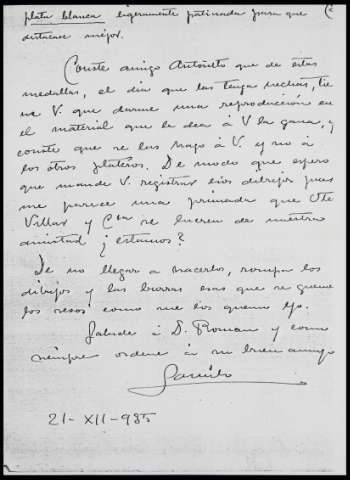 plata blanca ligeramente patinada para que
destacase mejor.
Conste amigo Antoñito que de estas
medallas, el dia que las tenga hechas, tie
ne V. que darme una reproduccion en
el material que le dea á V la gana, y
conste que se las hago á V. y no á
los otros plateros. De modo que espero
que mande V. registrar esos dibujos pues
me parece una primada que
Villar y Cia se lucren de nuestra
amistad ¿estamos?
De no llegar a hacerlos, rompa los
dibujos y las borras esas que se queme
los sesos como me los quemo yo.
Salude á D. Roman y como
siempre ordene á su buen amigo
21-XII-985